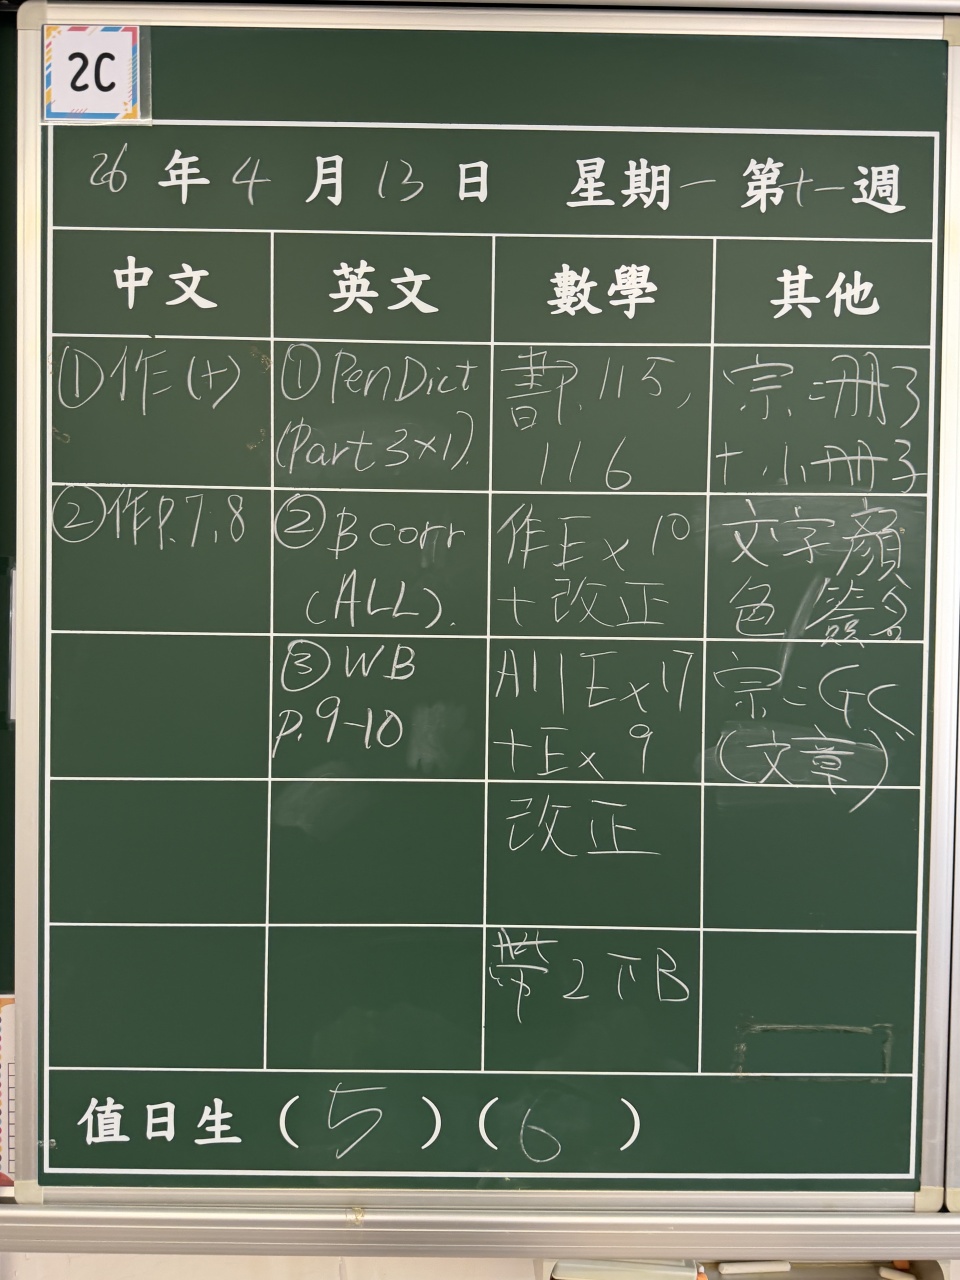 2C
26年4月13日 星期一 第十一週
中文 英文 數學 其他
①作(十)
①Pen Dict
(Part 3×1).
書P.115,
116
宗=冊子
+小冊子
②作P.7,8
②B corr
(ALL).
作Ex 10
+改正
文字顏
色 簽名
③WB
P.9-10
All Ex 17
+Ex 9
宗=GS
(文章)
改正
帶2下B
值日生(5)(6)